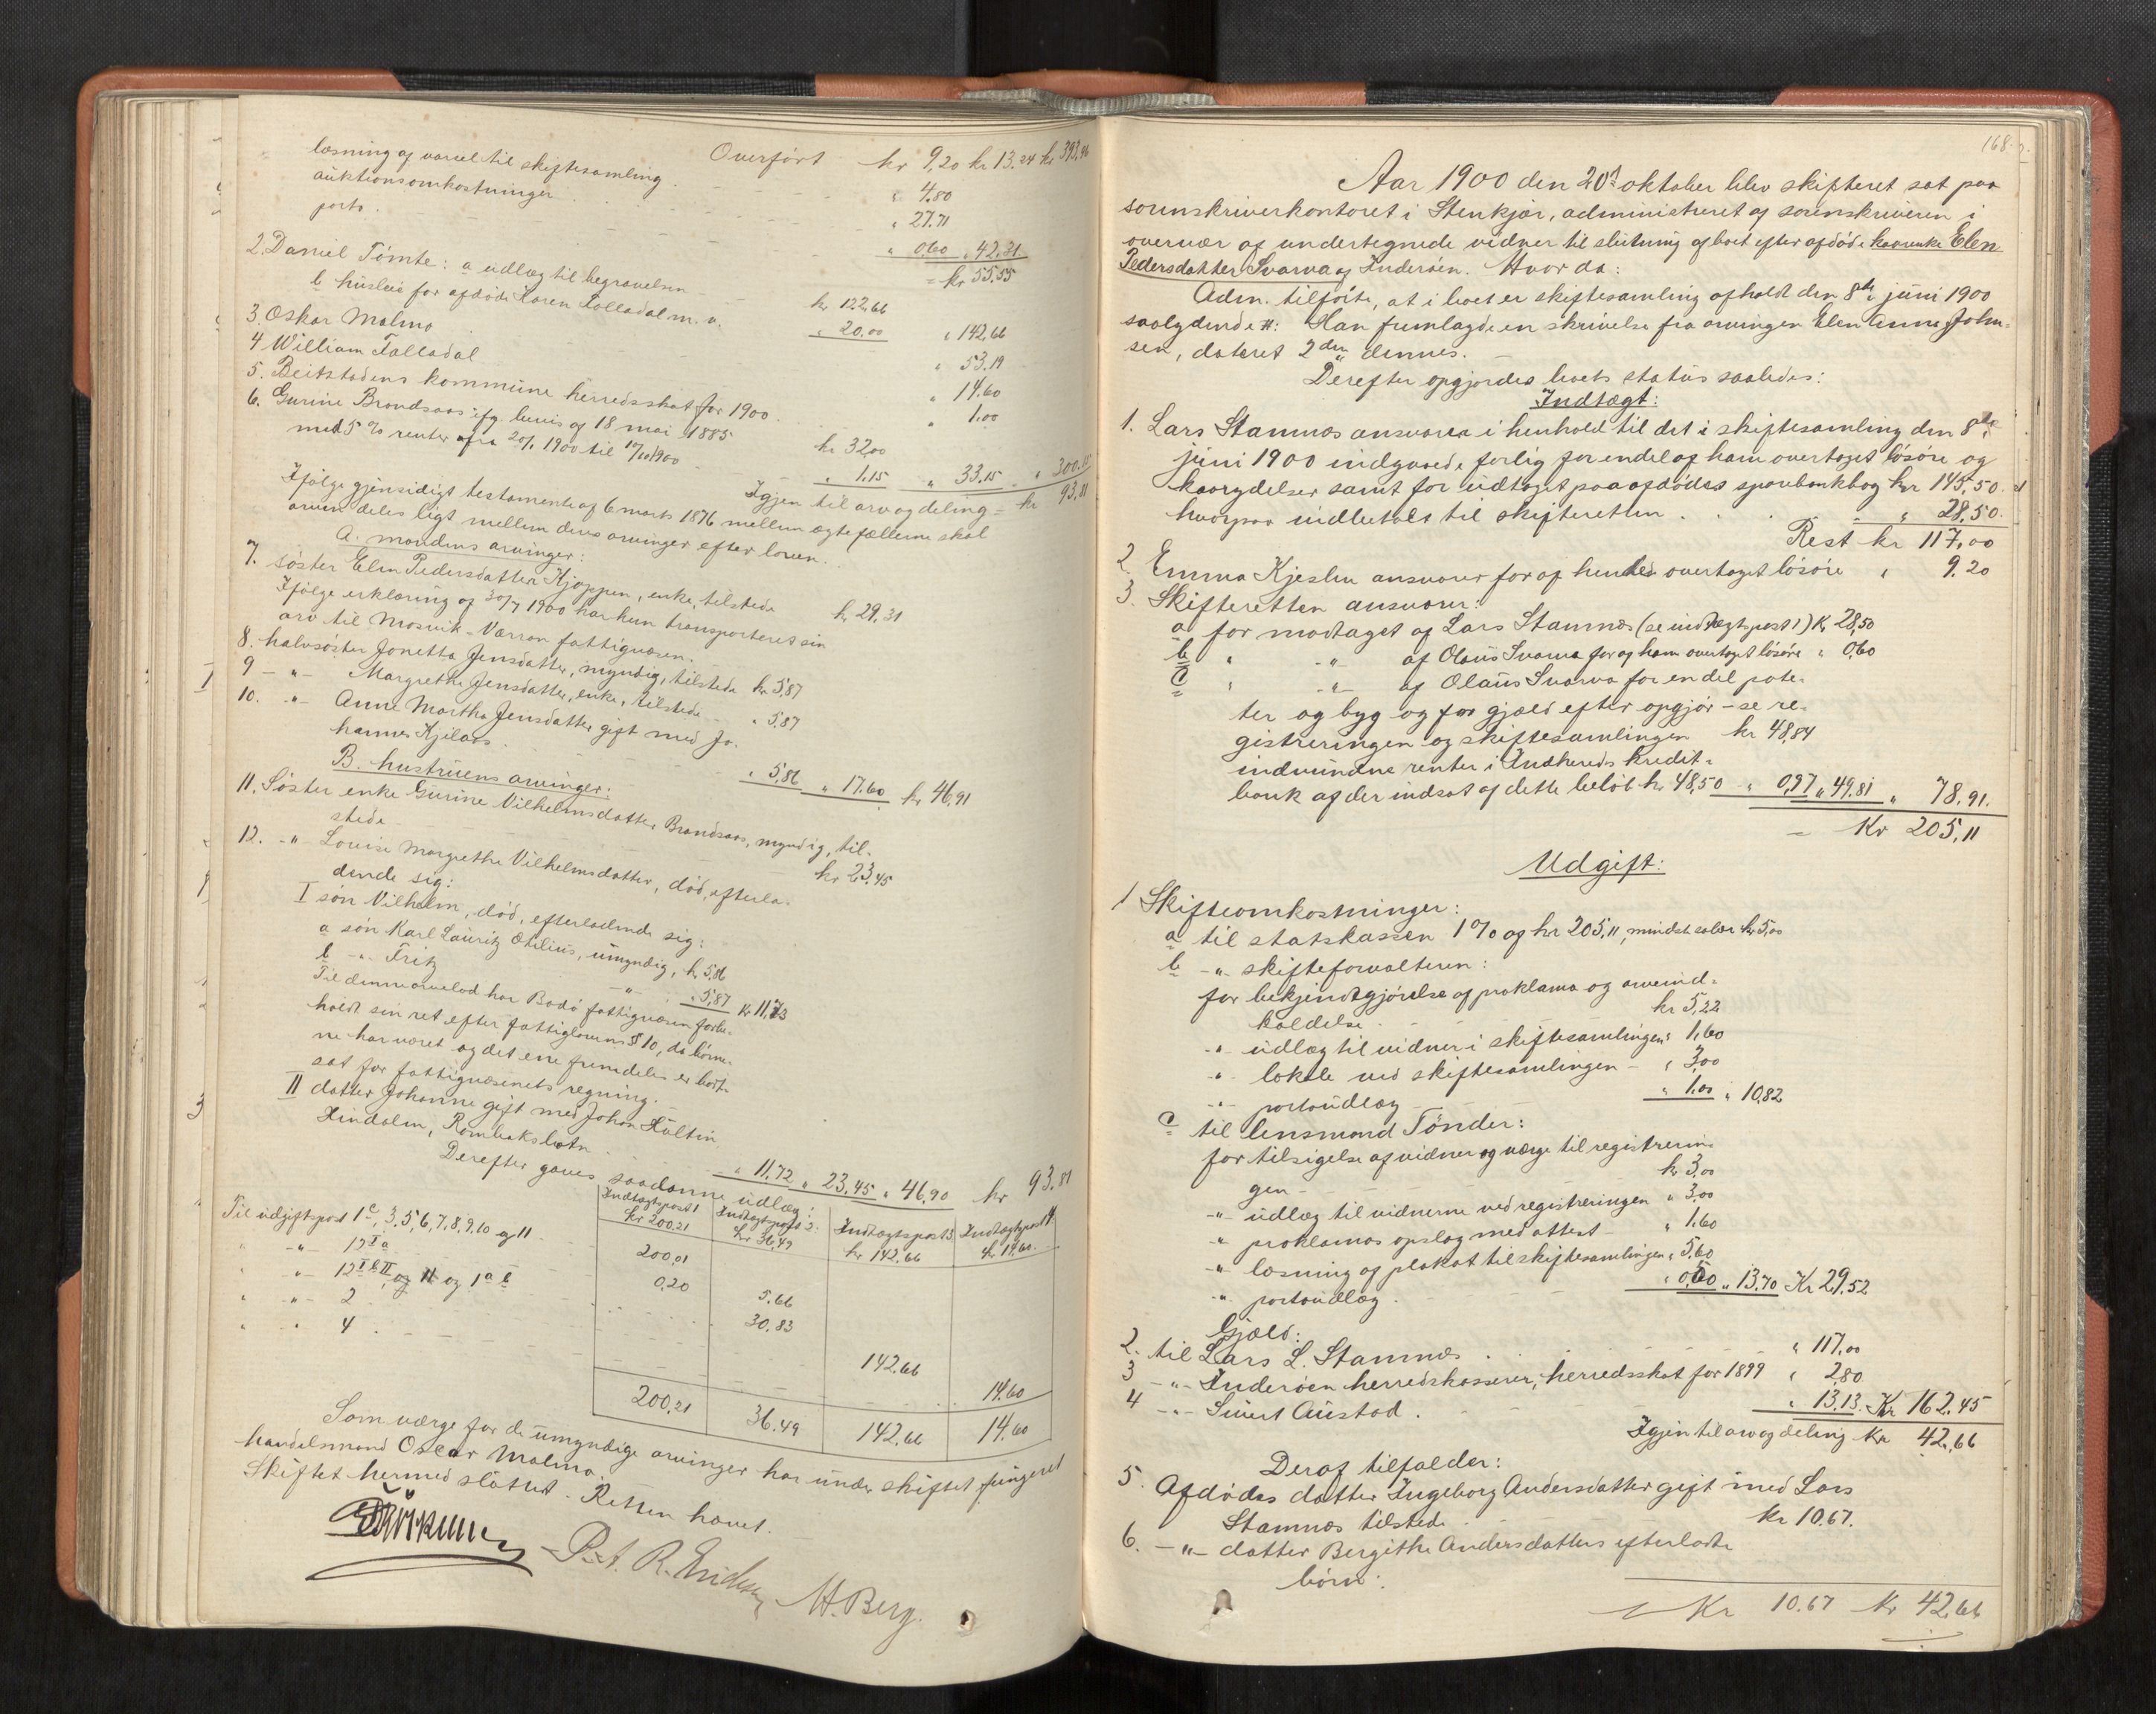 Overført kr 9,20 kr 13.24 kr 393,96
læsning af varsel til skiftesamling . " 4,80
auktionsomkostninger " 27.71
porto . " 0.60 " 42.31
= kr 55,55
2. Daniel Tømte: a udlæg til begravelsen kr 122,66
b husleie for afdøde Karen Folladal m. v. " 20,00 " 142,66
3. Oskar Malmo " 53.19
4 William Folladal " 14.60
5. Beitstadens kommune herredsskat for 1900 . " 1.00
6. Gurine Brandsaas ifg. bevis af 18 mai 1885 kr 32,00
med 5 % renter fra 20/1 1900 til 10/10 1900 " 1.15 " 33.15 " 300.15
Igjen til arv og deling = kr 93,81
Ifølge gjensidigt testamente af 6 marts 1876 mellem ægtefællerne skal
arven deles ligt mellem deres arvinger efter loven.
A. mandens arvinger:
7. søster Elen Pedersdatter Kjøppen, enke, tilstede kr. 29,31
Ifølge erklæring af 30/7 1900 har hun transporteret sin
arv til Mosvik-Værran fattigvæsen.
8. halvsøster Jonetta Jensdatter, myndig, tilstede kr 5,87
9 - " - Margrethe Jensdatter, enke, tilstede " 5,87
10. - " - Anne Martha Jensdatter gift med Jo-
hannes Kjilaas . " 5,86 " 17.60 kr 46,91
B. hustruens arvinger:
11. Søster enke Gurine Vilhelmsdatter Brandsaas, myndig, til-
stede kr 23,45
12. - " Louise Margrethe Vilhelmsdatter, død, efterla-
dende sig:
I søn Vilhelm, død, efterladende sig:
a søn Karl Lauritz Otilius, umyndig, kr 5,86
b - " - Fritz - " - " 5,87 kr 11,73
Til denne arvelod har Bodø fattigvæsen forbe-
holdt sin ret efter fattiglovens § 10, da børne-
ne har været og det ene fremdeles er bort-
sat for fattigvæsenets regning.
II datter Johanne gift med Johan Hultin
Hindalen, Rombaksbotn . " 11,72 " 23,45 " 46,90 kr 93.81
Derefter gaves saadanne udlæg:
Indtægtspost 1 kr 200.21 Indtægtspost 2. kr 36,49 Indtægtspost 3. kr 142,66 Indtægtspost 4 kr 14,60.
Til udgiftspost 1c, 3, 5, 6, 7, 8, 9, 10 og 11 200,01
" - " - 12 I a 0,20 5.66
" " - 12 I b II og 1 a b 30,83
" - " - 2 142,66
" " 4 . 14.60
200,21 36.49 142,66 14.60
Som værge for de umyndige arvinger har under skiftet fungeret
handelsmand Oscar Malmo.
Skiftet hermed sluttet. Retten hævet.
M. Berg.
168
Aar 1900 den 20de oktober blev skifteret sat paa
sorenskriverkontoret i Stenkjær, administreret af sorenskriveren i
overvær af undertegnede vidner til slutning af boet efter afdøde kaarenke Elen
Pedersdatter Svarva af Inderøen. Hvor da:
Adm. tilførte, at i boet er skiftesamling afholdt den 8de juni 1900
saalydende #: Han fremlagde en skrivelse fra arvingen Elen Anna John-
sen, dateret 2den dennes. –
Derefter opgjordes boets status saaledes:
Indtægt:
1. Lars Stamnæs ansvarer i henhold til det i skiftesamling den 8de
juni 1900 indgaaede forlig for endel af ham overtaget løsøre og
kaarydelser samt for udtaget paa afdødes sparebankbog kr 145,50.
hvorpaa indbetalt til skifteretten . " 28,50.
Rest kr 117,00
2. Emma Kjeslen ansvarer for af hende overtaget løsøre " 9.20
3. Skifteretten ansvarer:
a for modtaget af Lars Stamnæs (se indtægtspost 1) Kr 28,50
b " - " - af Olaus Svarva for af ham overtaget løsøre " 0,60
c " - " - af Olaus Svarva for en del pote-
ter og byg og for gjæld efter opgjør – se re-
gistreringen og skiftesamlingen kr 48,84
indvundne renter i Indherreds kredit-
bank af der indsat af dette beløb kr 48,50 " 0,97 " 49.81 " 78.91.
= Kr 205,11
Udgift:
1 Skifteomkostninger:
a til statskassen 1 % af kr 205,11, mindst salær kr 5,00
b - " - skifteforvalteren:
for bekjendtgjørelse af proklama og arveind-
kaldelse . kr 5,22
- " - udlæg til vidner i skiftesamlingen " 1,60
- " - lokale ved skiftesamlingen – " 3,00
- " - portoudlæg " 1.00 " 10,82
c til lensmand Tønder:
for tilsigelse af vidner og værge til registrerin-
gen – kr 3,00
- " - udlæg til vidnerne ved registreringen " 3,00
- " proklamas opslag med attest – " 1.60
- " læsning af plakat til skiftesamlingen " 5,60
- " portoudlæg . " 0,50 " 13,70 Kr 29,52
Gjæld:
2. til Lars L. Stamnæs . " 117,00
3 - " - Inderøen herredskasserer, herredsskat for 1899 " 2,80
4 - " - Sivert Austad . " 13,13. Kr 162.45
Igjen til arv og deling Kr 42,66
Deraf tilfalder:
5. Afdødes datter Ingeborg Andersdatter gift med Lars
Stamnæs tilstede . kr 10.67.
6. - " - datter Bergithe Andersdatters efterladte
børn:
Kr 10.67 Kr 42,66